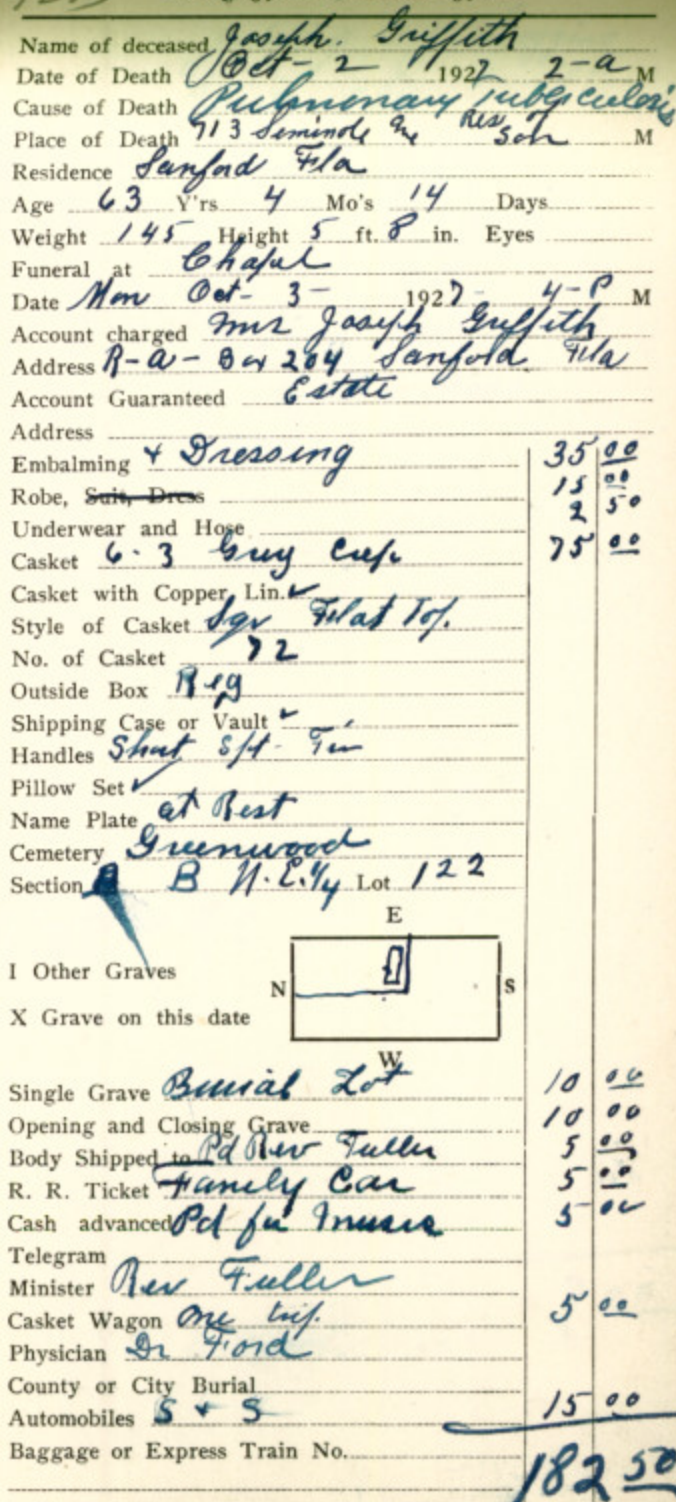 Name of deceased Joseph. Griffith
Date of Death Oct- 2 1927 2-a M
Cause of Death Pulmonary Tuberculosis
Place of Death 713 Seminole Ave Res of Son M
Residence Sanford Fla
Age 63 Y'rs 4 Mo's 14 Days
Weight 145 Height 5 ft. 8 in. Eyes
Funeral at Chapel
Date Mon Oct- 3- 1927- 4-P M
Account charged Mrs Joseph Griffith
Address R-A- Box 204 Sanford Fla
Account Guaranteed Estate
Address
Embalming + Dressing 35 00
Robe, Suit, Dress 15 00
Underwear and Hose 2 50
Casket 6-3 Grey Crep 75 00
Casket with Copper Lin. ✓
Style of Casket Sqr Flat Top.
No. of Casket 72
Outside Box Reg
Shipping Case or Vault ✓
Handles Short
Pillow Set ✓
Name Plate at Rest
Cemetery Greenwood
Section B N.E.1/4 Lot 122
E
I Other Graves
N S
X Grave on this date
W
Single Grave Burial Lot 10 00
Opening and Closing Grave 10 00
Body Shipped to Pd Rev Fuller 5 00
R. R. Ticket Family Car 5 00
Cash advanced Pd for Music 5 00
Telegram
Minister Rev Fuller
Casket Wagon one trip. 5 00
Physician Dr Ford
County or City Burial
Automobiles S + S 15 00
Baggage or Express Train No.
182 50